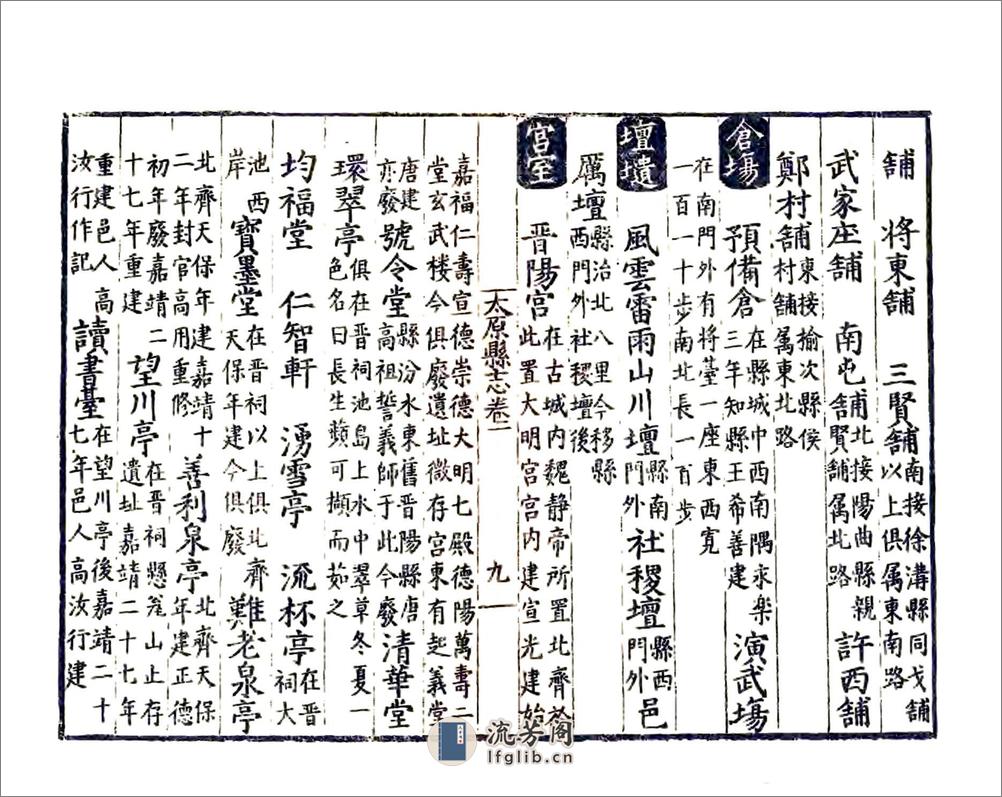 舖 將東舖 三賢舖 南接徐溝縣同戈舖以上俱属東南路
武家庄舖 南屯舖 北接陽曲縣親賢舖属北路 許西舖
鄭村舖 東接榆次縣侯村舖属東北路
倉塲 預備倉 在縣城中西南隅永樂三年知縣王希善建 演武塲
在南門外有將臺一座東西寛一百一十步南北長一百步
壇壝 風雲雷雨山川壇 縣南門外 社稷壇 縣西門外 邑
厲壇 縣治北八里今移縣西門外社稷壇後
宫室 晋陽宮 在古城内魏静帝所置北齊於此置大明宮宮内建宣光建始
太原縣志卷一 九
嘉福仁壽宣德崇德大明七殿德陽萬壽二堂玄武楼今俱廢遺址微存宮東有起義堂
唐建亦廢 號令堂 縣汾水東舊晋陽縣唐高祖誓義師于此今廢 清華堂
環翠亭 俱在晋祠池島上水中翠草冬夏一色名曰長生蘋可擷而茹之
均福堂 仁智軒 湧雪亭 流杯亭 在晋祠大
池西岸 寶墨堂 在晋祠以上俱北齊天保年建今俱廢 難老泉亭
北齊天保年建嘉靖十二年封官高用重修 善利泉亭 北齊天保年建正德
初年廢嘉靖二十七年重建 望川亭 在晋祠懸瓮山止存遺址嘉靖二十七年
重建邑人高汝行作記 讀書臺 在望川亭後嘉靖二十七年邑人高汝行建
流芳阁
lfglib.cn